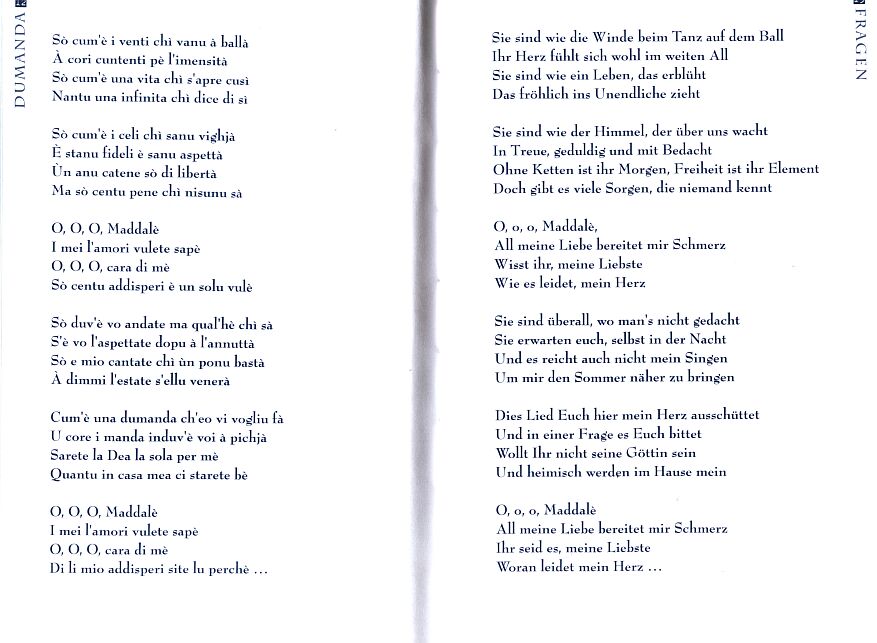 DUMANDA
Sò cum'è i venti chì vanu à ballà
À cori cuntenti pè l'imensità
Sò cum'è una vita chì s'apre cusì
Nantu una infinita chì dice di sì
Sò cum'è i celi chì sanu vighjà
È stanu fideli è sanu aspettà
Ùn anu catene sò di libertà
Ma sò centu pene chì nisunu sà
O, O, O, Maddalè
I mei l'amori vulete sapè
O, O, O, cara di mè
Sò centu addisperi è un solu vulè
Sò duv'è vo andate ma qual'hè chì sà
S'è vo l'aspettate dopu à l'annuttà
Sò e mio cantate chì ùn ponu bastà
À dimmi l'estate s'ellu venerà
Cum'è una dumanda ch'eo vi vogliu fà
U core i manda induv'è voi à pichjà
Sarete la Dea la sola per mè
Quantu in casa mea ci starete bè
O, O, O, Maddalè
I mei l'amori vulete sapè
O, O, O, cara di mè
Di li mio addisperi site lu perchè ...
FRAGEN
Sie sind wie die Winde beim Tanz auf dem Ball
Ihr Herz fühlt sich wohl im weiten All
Sie sind wie ein Leben, das erblüht
Das fröhlich ins Unendliche zieht
Sie sind wie der Himmel, der über uns wacht
In Treue, geduldig und mit Bedacht
Ohne Ketten ist ihr Morgen, Freiheit ist ihr Element
Doch gibt es viele Sorgen, die niemand kennt
O, o, o, Maddalè,
All meine Liebe bereitet mir Schmerz
Wisst ihr, meine Liebste
Wie es leidet, mein Herz
Sie sind überall, wo man's nicht gedacht
Sie erwarten euch, selbst in der Nacht
Und es reicht auch nicht mein Singen
Um mir den Sommer näher zu bringen
Dies Lied Euch hier mein Herz ausschüttet
Und in einer Frage es Euch bittet
Wollt Ihr nicht seine Göttin sein
Und heimisch werden im Hause mein
O, o, o, Maddalè
All meine Liebe bereitet mir Schmerz
Ihr seid es, meine Liebste
Woran leidet mein Herz ...